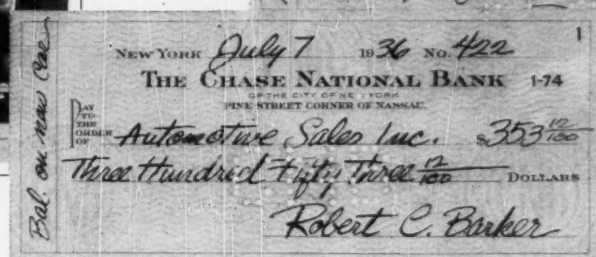 Bal. on new Car
1
NEW YORK July 7 1936 No. 422
THE CHASE NATIONAL BANK 1-74
OF THE CITY OF NEW YORK
PINE STREET CORNER OF NASSAU.
PAY TO THE ORDER OF Automotive Sales Inc. $353 12/100
Three Hundred Fifty Three 12/100 DOLLARS
Robert C. Barker